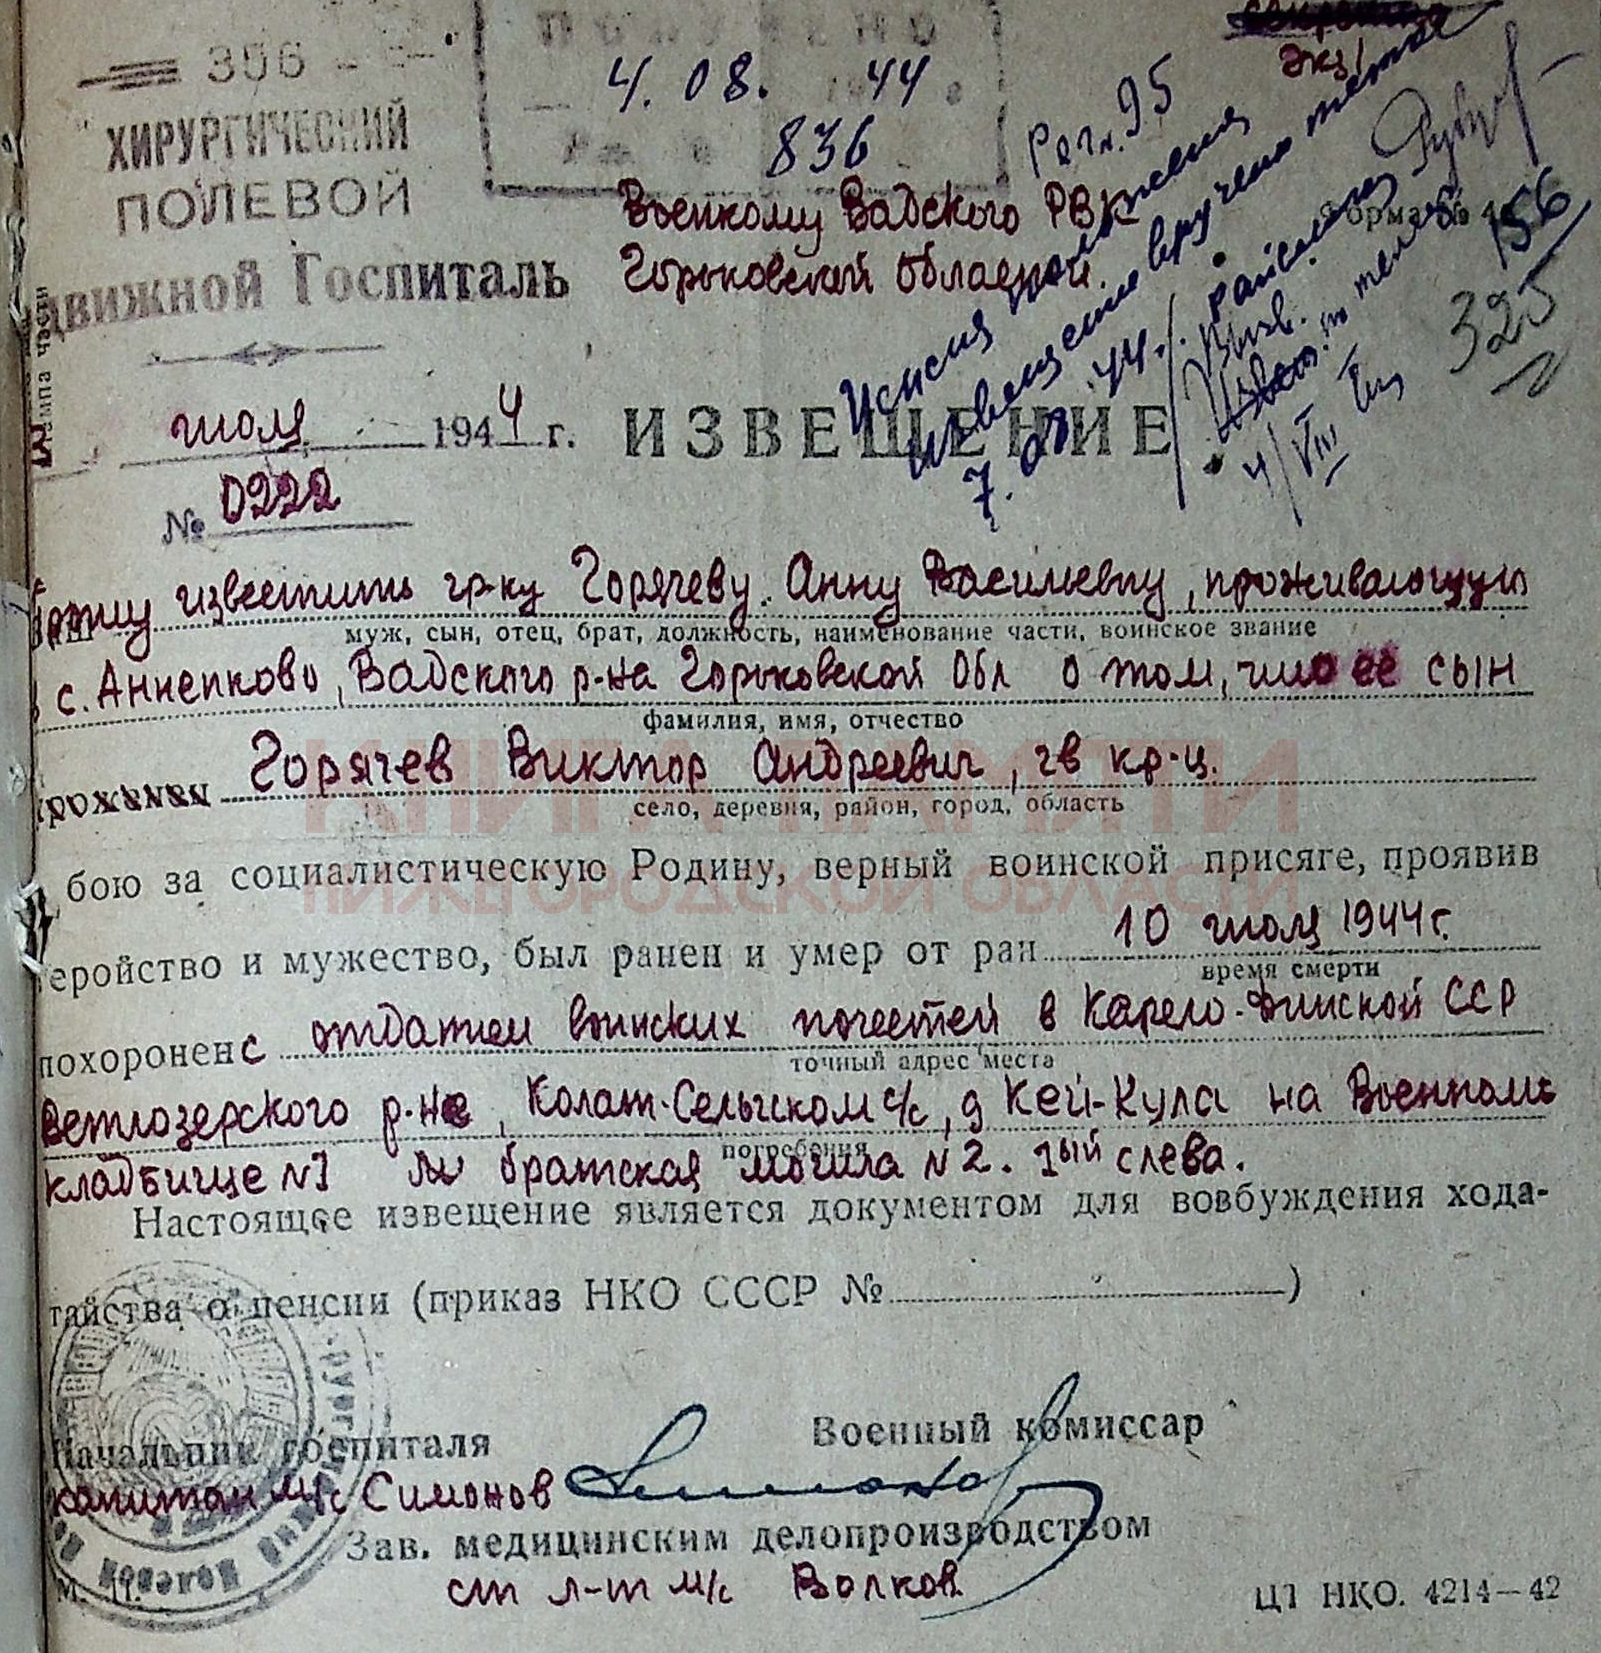 356
ХИРУРГИЧЕСКИЙ
ПОЛЕВОЙ
движной Госпиталь
4. 08. 44
836
Экз 1
Рег н. 95
Военкому Вадского РВК
Горьковской области.
156
325
7. 08. 44 г.
4/VIII
июля 1944 г.
ИЗВЕЩЕНИЕ
№ 0222
известить гр-ку Горячеву Анну Васильевну, проживающую
муж, сын, отец, брат, должность, наименование части, воинское звание
с. Анненково, Вадского р-на Горьковской Обл о том, что ее сын
фамилия, имя, отчество
Горячев Виктор Андреевич, гв кр-ц.
село, деревня, район, город, область
бою за социалистическую Родину, верный воинской присяге, проявив
еройство и мужество, был ранен и умер от ран 10 июля 1944 г.
время смерти
похоронен с отдачей воинских почестей в Карело-Финской ССР
точный адрес места
Ветлозерского р-на, Колат-Сельгском с/с, д Кей-Кула на Военном
погребения
кладбище N1 братская могила N 2. 1ый слева.
Настоящее извещение является документом для возбуждения хода-
тайства о пенсии (приказ НКО СССР № )
Начальник госпиталя
Военный комиссар
капитан м/с Симонов
Зав. медицинским делопроизводством
ст л-т м/с Волков
ЦТ НКО. 4214—42
КНИГА ПАМЯТИ
НИЖЕГОРОДСКОЙ ОБЛАСТИ